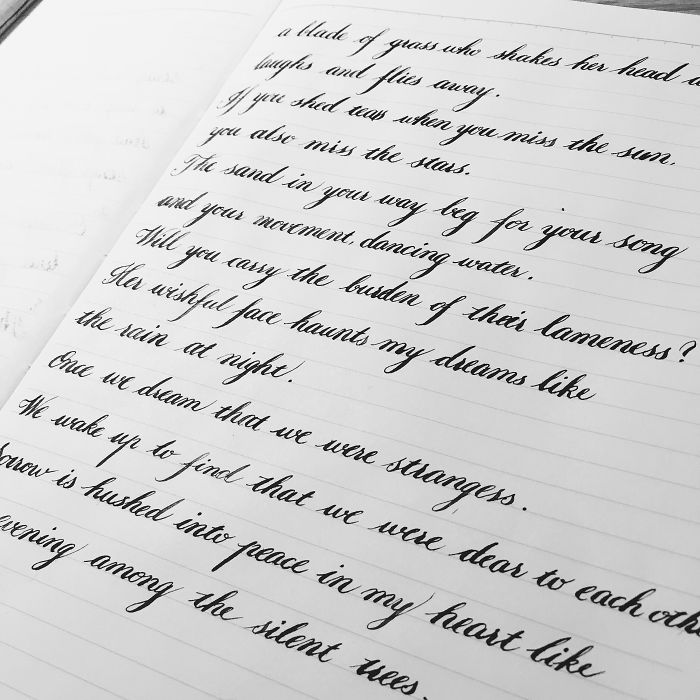 a blade of grass who shakes her head
laughs and flies away.
If you shed teas when you miss the sun,
you also miss the stars.
The sand in your way beg for your song
and your movement, dancing water.
Will you carry the burden of their lameness?
Her wishful face haunts my dreams like
the rain at night.
Once we dream that we were strangers.
We wake up to find that we were dear to each
Sorrow is hushed into peace in my heart like
evening among the silent trees.